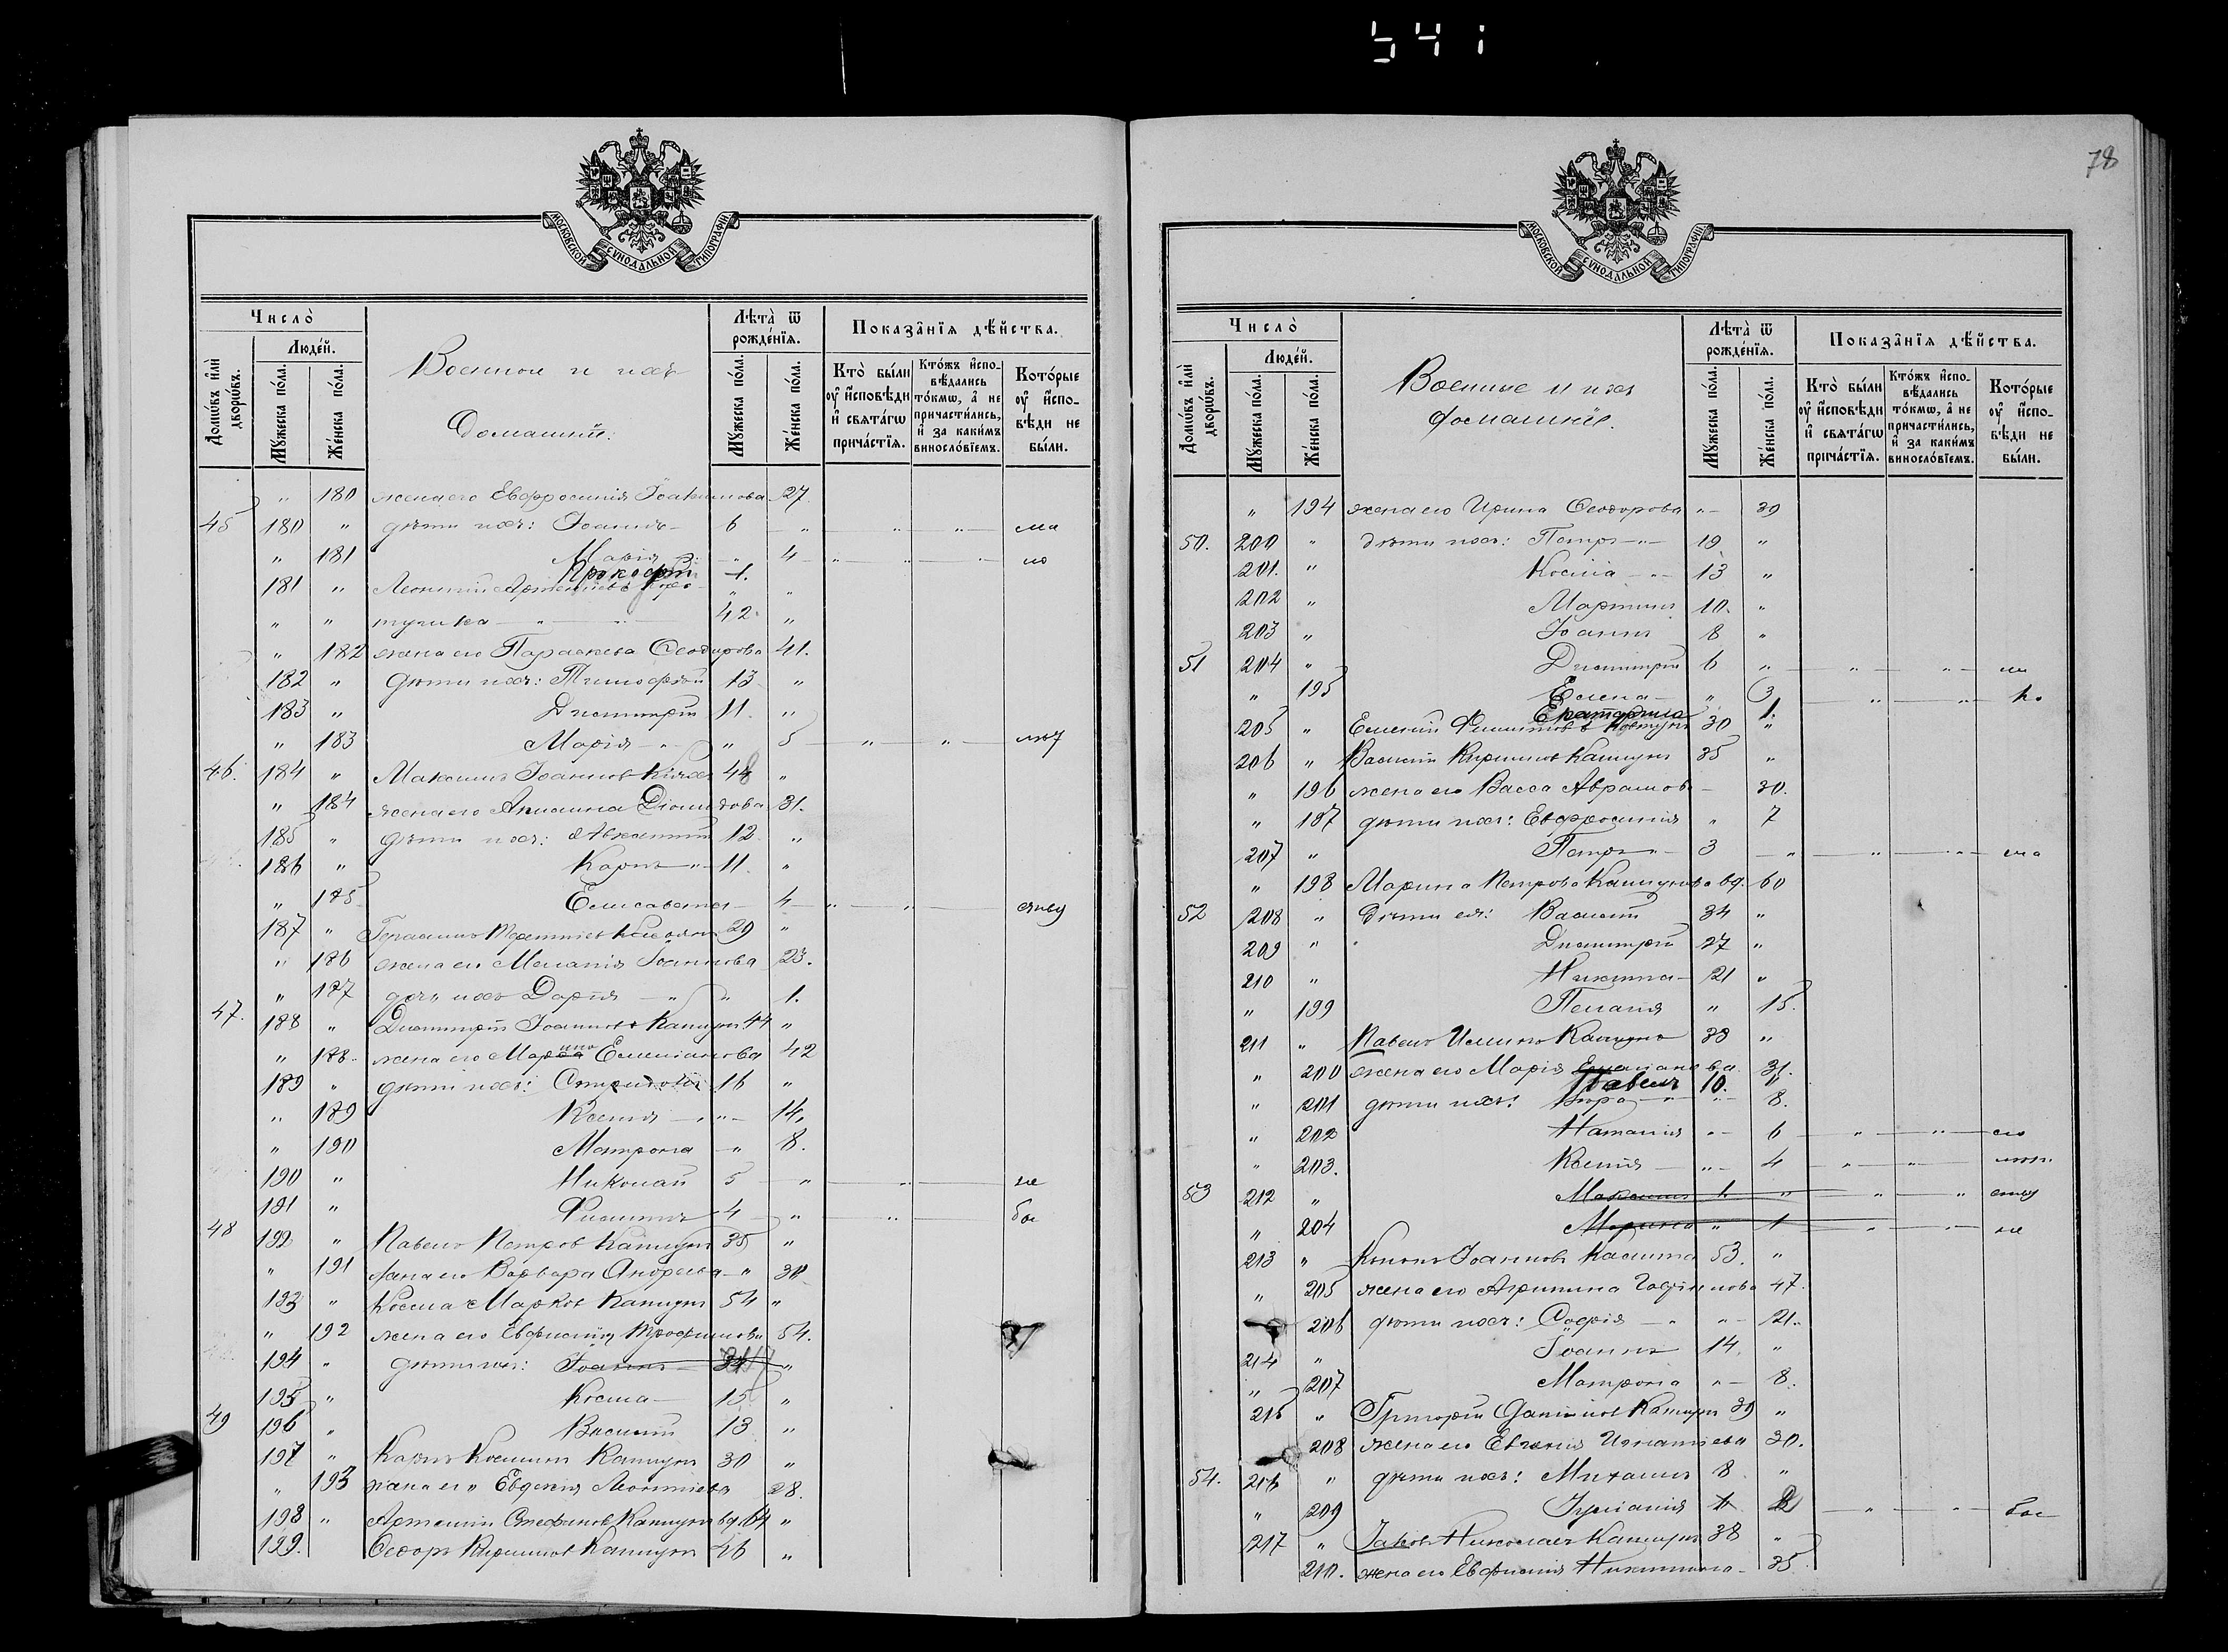 541
78
МОСКОВСКОЙ СѴНОДАЛЬНОЙ ТИПОГРАФІИ
Число̀
Люде́й.
Домѡ́въ и҆лѝ дворѡ́въ.
Мꙋ́жеска по́ла.
Же́нска по́ла.
Военные и ихъ
Домашніе:
Лѣта̀ ѿ рожде́нїѧ.
Мꙋ́жеска по́ла.
Же́нска по́ла.
Показа̑нїѧ дѣ́йства.
Кто̀ бы́ли оу҆ и҆сповѣди и҆ свѧта́гѡ прича́стїѧ.
Кто́жъ и҆сповѣдались то́кмѡ, а҆ не причасти́лись, и҆ за каки́мъ винослові́емъ.
Кото́рые оу҆ и҆сповѣди не бы́ли.
„ 180 жена его Евфросинія Іоакимова 27.
45 180 „ дѣти ихъ: Іоаннъ 6 „ „ „ ма
„ 181 Марія „ 4 „ „ „ ло
Прокофій 1.
181 „ Леонтій Артеміевъ „ „
„ „ 42 „
„ 182 жена его Параскева Ѳеодорова 41.
182 „ Дѣти ихъ: Тимофей 13 „
183 „ Димитрій 11. „
„ 183 Марія „ „ 5 „ „ лѣт
46. 184 „ Максимъ Іоанновъ 48 „
„ 184 жена его Акилина 31.
185 „ дѣти ихъ: 12. „
186 „ Карпъ „ 11. „
„ 185 Елисавета 4 „ „
187 „ Герасимъ 29 „
„ 186 жена его Меланія Іоаннова 23.
„ 187 дочь ихъ Дарія „ „ 1.
47. 188 „ Димитрій Іоанновъ Капшукъ 44 „
„ 188. жена его Емеліанова 42
189 „ дѣти ихъ: Спиридонъ 16 „
„ 189 Ксенія „ „ 14.
„ 190 Матрона „ 8.
190 „ Николай 5 „ „ не
191 „ Филиппъ 4 „ „ бы
48 192 „ Павелъ Петровъ Капшукъ 35 „
„ 191 жена его Варвара Андреева „ 30
193 „ Косма Марковъ Капшукъ 54 „
„ 192 жена его Евфимія Трофимова 54.
194 „ дѣти ихъ: Іоаннъ „
195 „ Косма 15 „
49 196 „ Василій 13 „
197 „ Карпъ Косминъ Капшукъ 30 „
„ 193 жена его Евдокія Леонтіева 28.
198 „ Артемій Стефановъ Капшукъ вд. 64 „
199. Ѳеодоръ Кирилловъ Капшукъ 46 „
МОСКОВСКОЙ СѴНОДАЛЬНОЙ ТИПОГРАФІИ
Число̀
Люде́й.
Домѡ́въ и҆лѝ дворѡ́въ.
Мꙋ́жеска по́ла.
Же́нска по́ла.
Военные и ихъ
домашніе.
Лѣта̀ ѿ рожде́нїѧ.
Мꙋ́жеска по́ла.
Же́нска по́ла.
Показа̑нїѧ дѣ́йства.
Кто̀ бы́ли оу҆ и҆сповѣди и҆ свѧта́гѡ прича́стїѧ.
Кто́жъ и҆сповѣдались то́кмѡ, а҆ не причасти́лись, и҆ за каки́мъ винослові́емъ.
Кото́рые оу҆ и҆сповѣди не бы́ли.
„ 194 жена его Ирина Ѳеодорова „ 39
50. 200 „ дѣти ихъ: Петръ „ 19 „
201. „ Косма „ 13 „
202 „ Мартинъ 10. „
203 „ Іоаннъ 8 „
51 204 „ Димитрій 6 „ „ „ ма
„ 195 Елена „ 3 „ „ ло
Екатерина 1.
205 „ Филипповъ 30 „
206 „ Василій Кирилловъ Капшукъ 35 „
„ 196 жена его Васса Аврамова 30.
„ 197 дѣти ихъ: Евфросинія „ 7
207 „ Петръ „ 3 „ „ „ ма
„ 198 Марина Петрова Капшукова вд. 60
52 208 „ Дѣти ея: Василій 34 „
209 „ Димитрій 27 „
210 „ Никита 21 „
„ 199 Пелагія „ 15.
211 „ Павелъ Капшукъ 38 „
„ 200 жена его Марія 31.
Павелъ 10. „
„ 201 дѣти ихъ: „ 8.
„ 202 Наталія „ 6 „ „ ло
„ 203. Ксенія „ 4 „ „ лѣт.
53 212 „ Максимъ 1 „ „ „
„ 204 Марина „ 1 „ „ не
213 „ Іоанновъ 53. „
„ 205 жена его Агрипина 47.
206 дѣти ихъ: Софія „ „ 21.
214 „ Іоаннъ 14. „
„ 207 Матрона „ 8.
215 „ Григорій Капшукъ 39 „
208 жена его Евгенія Игнатіева 30.
54. 216 „ дѣти ихъ: Михаилъ 8 „
„ 209 Іуліанія 2 „ „ бы
217 „ Іаковъ Николаевъ Капшукъ 38 „
210. жена его Евфимія Никитина 35